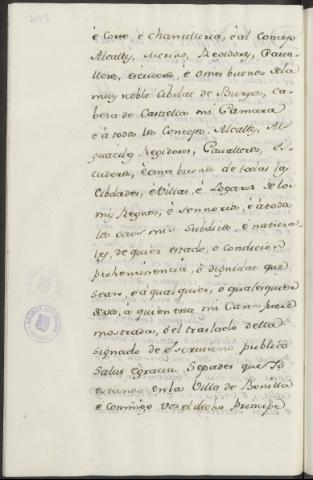 è Corte, è chancilleria, è al Concejo
Alcaldes, Merino, Regidores, Cava-
lleros, escuderos, è omes buenos dela
muy noble Cibdat de Burgos, ca-
beza de Castiella mi Camara
è à todos los Concejos, Alcaldes, Al-
guaciles, Regidores, Cavalleros, es-
cuderos, è omes buenos de todas las
Cibdades, è Villas, è Logares delos
mis Regnos, è sennorios, è à todos
los otros mis Subditos, è natura-
les, de quier estado, o condicion
preheminencia, ò dignidat que
sean, è à qualquier, ò qualesquier
de vos, à quien esta mi Carta fuere
mostrada, ò el traslado della
signado de escrivano publico
Salut è gracia. Sepades que Yo
estando en la Villa de Bonilla
è conmigo vos el dicho Principe